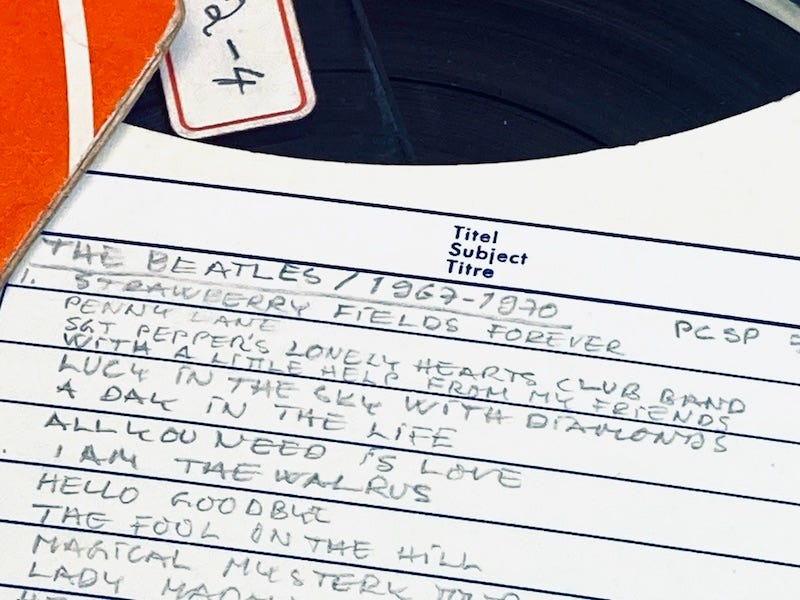 2-4
Titel
Subject
Titre
THE BEATLES / 1967-1970
1. STRAWBERRY FIELDS FOREVER PCSP
PENNY LANE
SGT PEPPER'S LONELY HEARTS CLUB BAND
WITH A LITTLE HELP FROM MY FRIENDS
LUCY IN THE SKY WITH DIAMONDS
A DAY IN THE LIFE
ALL YOU NEED IS LOVE
I AM THE WALRUS
HELLO GOODBYE
THE FOOL ON THE HILL
MAGICAL MYSTERY TOUR
LADY